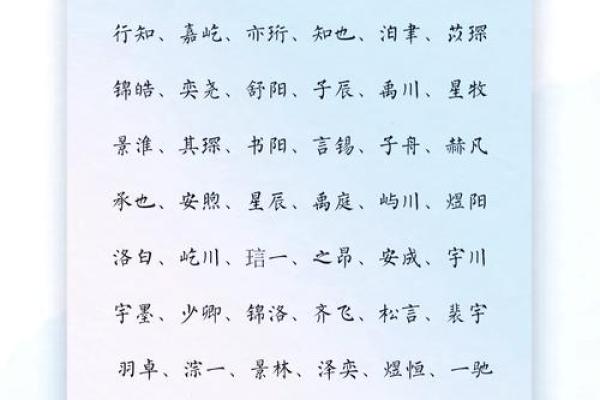 行知、嘉屹、亦珩、知也、泊聿、苡琛
锦皓、奕尧、舒阳、子辰、禹川、星牧
景淮、其琛、书阳、言锡、子舟、赫凡
承也、安煦、星辰、禹庭、屿川、煜阳
洛白、屹川、琂一、之昂、安成、宇川
宇墨、少卿、锦洛、齐飞、松言、裴宇
羽卓、淙一、景林、泽奕、煜恒、一驰